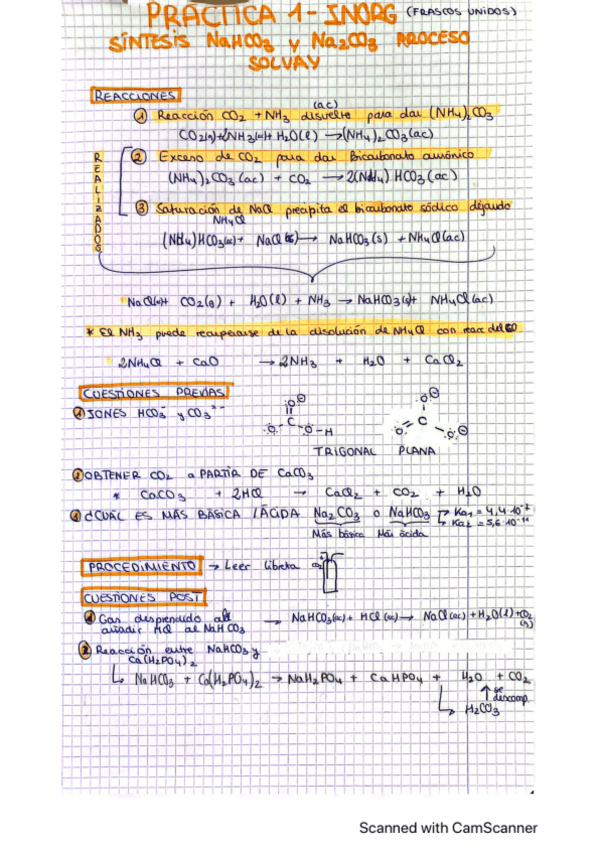 PRÁCTICA 1 - INORG (FRASCOS UNIDOS)
SÍNTESIS NaHCO3 y Na2CO3 PROCESO
SOLVAY
REACCIONES
(ac)
① Reacción CO2 + NH3 disuelto para dar (NH4)2CO3
CO2(g) + 2NH3(ac) + H2O(l) → (NH4)2CO3(ac)
REALIZADOS
② Exceso de CO2 para dar Bicarbonato amónico
(NH4)2CO3(ac) + CO2 → 2(NH4)HCO3(ac)
③ Saturación de NaCl precipita el bicarbonato sódico dejando
NH4Cl
(NH4)HCO3(ac) + NaCl → NaHCO3(s) + NH4Cl(ac)
NaCl(ac) + CO2(g) + H2O(l) + NH3 → NaHCO3(s) + NH4Cl(ac)
* El NH3 puede recuperarse de la disolución de NH4Cl con reacc del
2NH4Cl + CaO → 2NH3 + H2O + CaCl2
CUESTIONES PREVIAS
① IONES HCO3- y CO3 2-
O C O O - H
O C O O
TRIGONAL PLANA
② OBTENER CO2 a PARTIR DE CaCO3
* CaCO3 + 2HCl → CaCl2 + CO2 + H2O
① ¿CUÁL ES MÁS BÁSICA / ÁCIDA Na2CO3 o NaHCO3 → Ka1 = 4,4·10-7
→ Ka2 = 5,6·10-11
Más básica Más ácida
PROCEDIMIENTO → Leer libreta CO2
CUESTIONES POST
① Gas desprendido al → NaHCO3(ac) + HCl(ac) → NaCl(ac) + H2O(l) + CO2
(g)
añadir HCl al NaHCO3
② Reacción entre NaHCO3 y
Ca(H2PO4)2
↳ NaHCO3 + Ca(H2PO4)2 → NaH2PO4 + CaHPO4 + H2O + CO2
↑ se
descomp.
→ H2CO3
Scanned with CamScanner